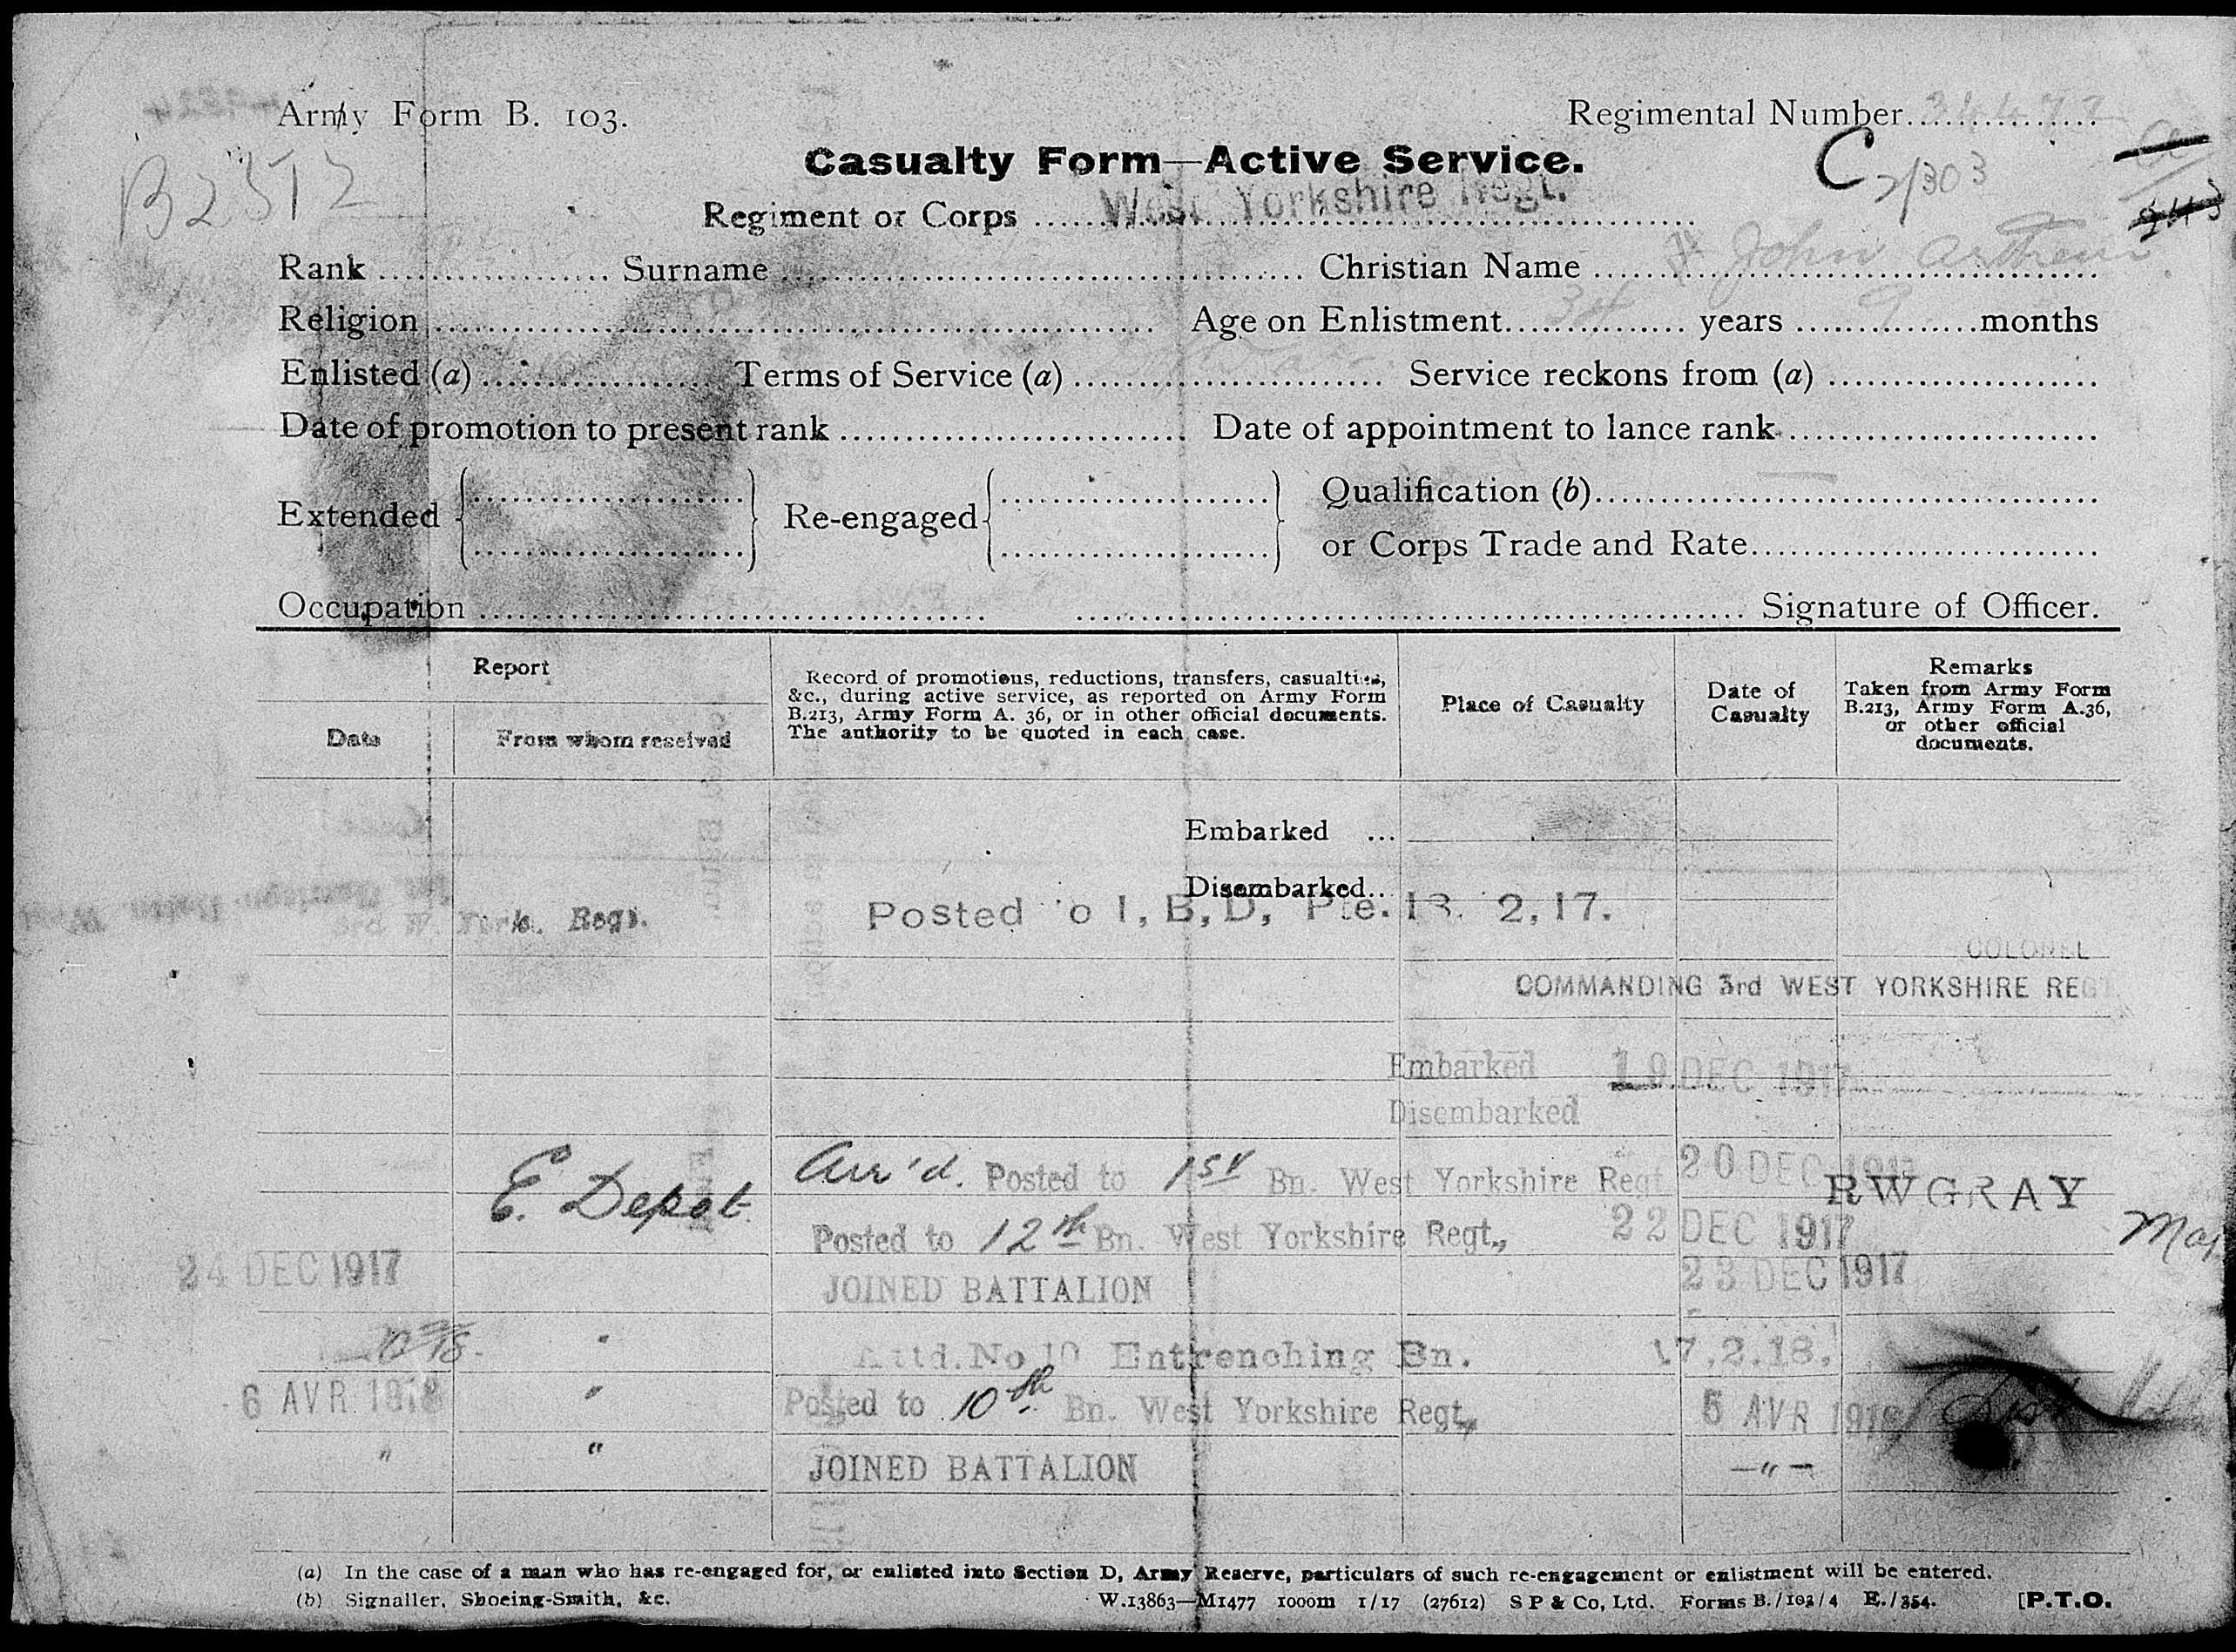 Army Form B. 103.
Regimental Number
Casualty Form—Active Service.
C 2/303
B2512
Regiment or Corps West Yorkshire Regt.
Rank Surname Christian Name John
Religion Age on Enlistment 34 years 9 months
Enlisted (a) Terms of Service (a) Service reckons from (a)
Date of promotion to present rank Date of appointment to lance rank
Extended Re-engaged Qualification (b)
or Corps Trade and Rate
Occupation Signature of Officer.
Report
Date
From whom received
Record of promotions, reductions, transfers, casualties,
&c., during active service, as reported on Army Form
B.213, Army Form A. 36, or in other official documents.
The authority to be quoted in each case.
Place of Casualty
Date of
Casualty
Remarks
Taken from Army Form
B.213, Army Form A.36,
or other official
documents.
Embarked ...
Disembarked..
3rd W. York. Regt. Posted to I,B,D, Pte. 13. 2,17.
COLONEL
COMMANDING 3rd WEST YORKSHIRE REGT
Embarked 19 DEC 1917
Disembarked
E. Depot. Arr'd. Posted to 1st Bn. West Yorkshire Regt 20 DEC 1917
RWGRAY
Posted to 12th Bn. West Yorkshire Regt., 22 DEC 1917 Maj
24 DEC 1917 JOINED BATTALION 23 DEC 1917
" Attd. No 10 Entrenching Bn. 17.2.18.
6 AVR 1918 " Posted to 10th Bn. West Yorkshire Regt., 5 AVR 1918 Capt
" " JOINED BATTALION —"—
(a) In the case of a man who has re-engaged for, or enlisted into Section D, Army Reserve, particulars of such re-engagement or enlistment will be entered.
(b) Signaller, Shoeing-Smith, &c. W.13863—M1477 1000m 1/17 (27612) S P & Co, Ltd. Forms B./103/4 E./354. [P.T.O.